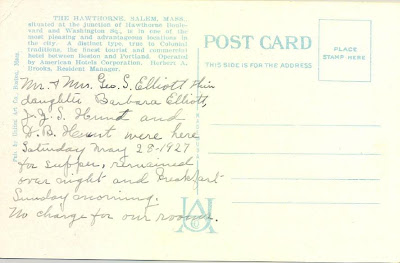 THE HAWTHORNE, SALEM, MASS.,
situated at the junction of Hawthorne Boule-
vard and Washington Sq., is in one of the
most pleasing and advantageous locations in
the city. A distinct type, true to Colonial
traditions, the finest tourist and commercial
hotel between Boston and Portland. Operated
by American Hotels Corporation, Herbert A.
Brooks, Resident Manager.
POST CARD
THIS SIDE IS FOR THE ADDRESS
PLACE
STAMP HERE
Mr. & Mrs. Geo. S. Elliott their
daughter Barbara Elliott,
J. G. S. Hunt and
H. B. Hunt were here
Saturday May 28-1927
for supper, remained
over night and breakfast
Sunday morning.
No charge for our rooms.